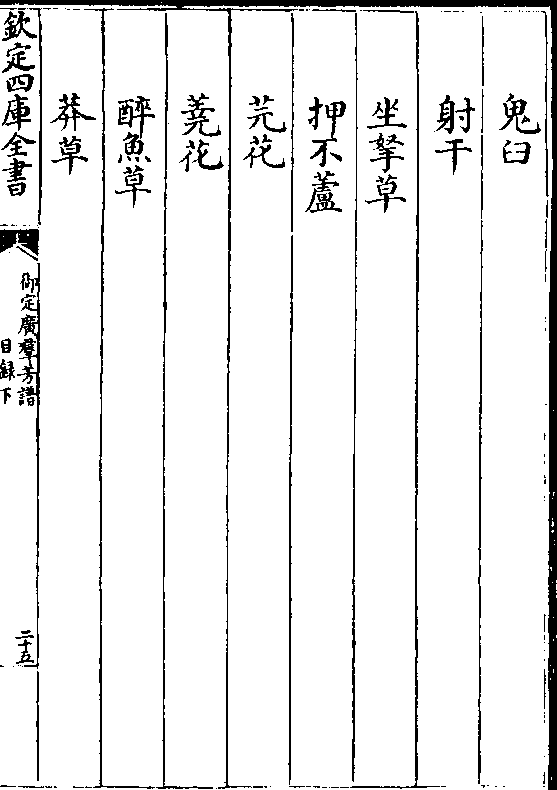 鬼臼
射干
坐拏草
押不蘆
芫花
蕘花
醉魚草
莽草
欽定四庫全書
御定廣羣芳譜
目録下
二十五